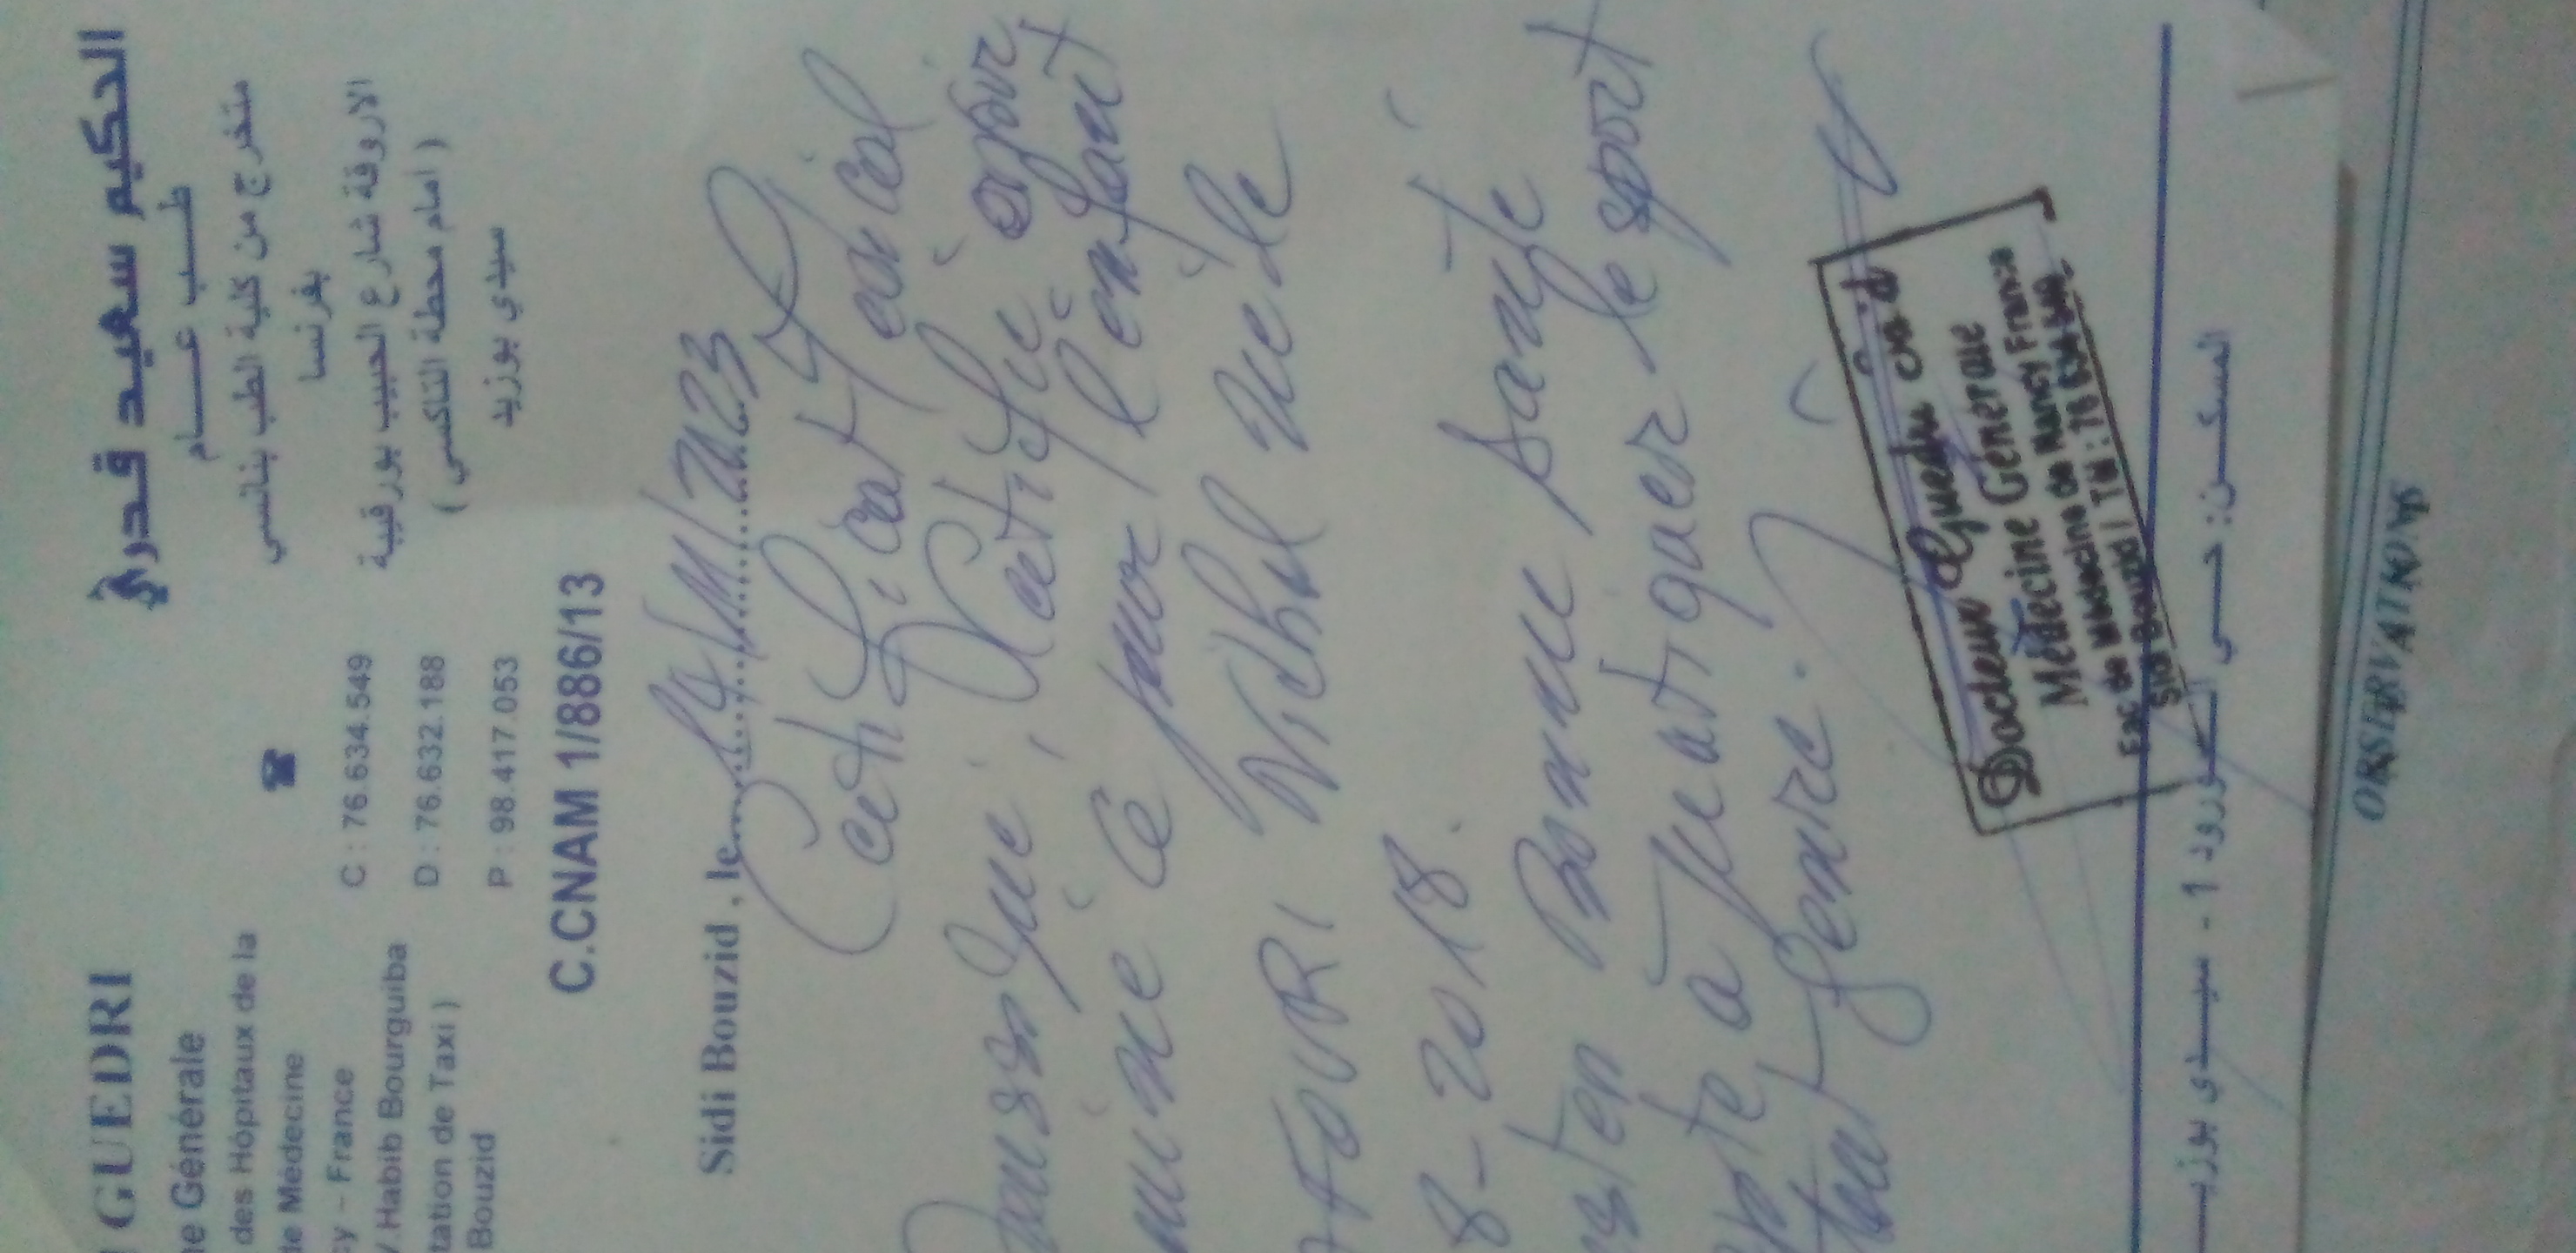 GUEDRI
ne Générale
des Hôpitaux de la
de Médecine
cy - France
V.Habib Bourguiba
tation de Taxi )
Bouzid
☎
C : 76.634.549
D : 76.632.188
P : 98.417.053
الحكيم سعيد قدري
طـــب عـــام
متخرج من كلية الطب بنانسي
بفرنسا
الاروقة شارع الحبيب بورقيبة
( امام محطة التاكسي )
سيدي بوزيد
C.CNAM 1/886/13
Sidi Bouzid , le 14/11/2023
Certificat Médical
Certifie avoir
miné ce jour l'enfant
Nidhal née le
8-2018.
est en Bonne santé
apte à pratiquer le sport
Docteur Guedri
Médecine Générale
Fac de Médecine de Nancy France
Sidi Bouzid / Tél : 76 634 549
المسكن: حـي 1 - سيدي بوزيد
OBSERVATIONS